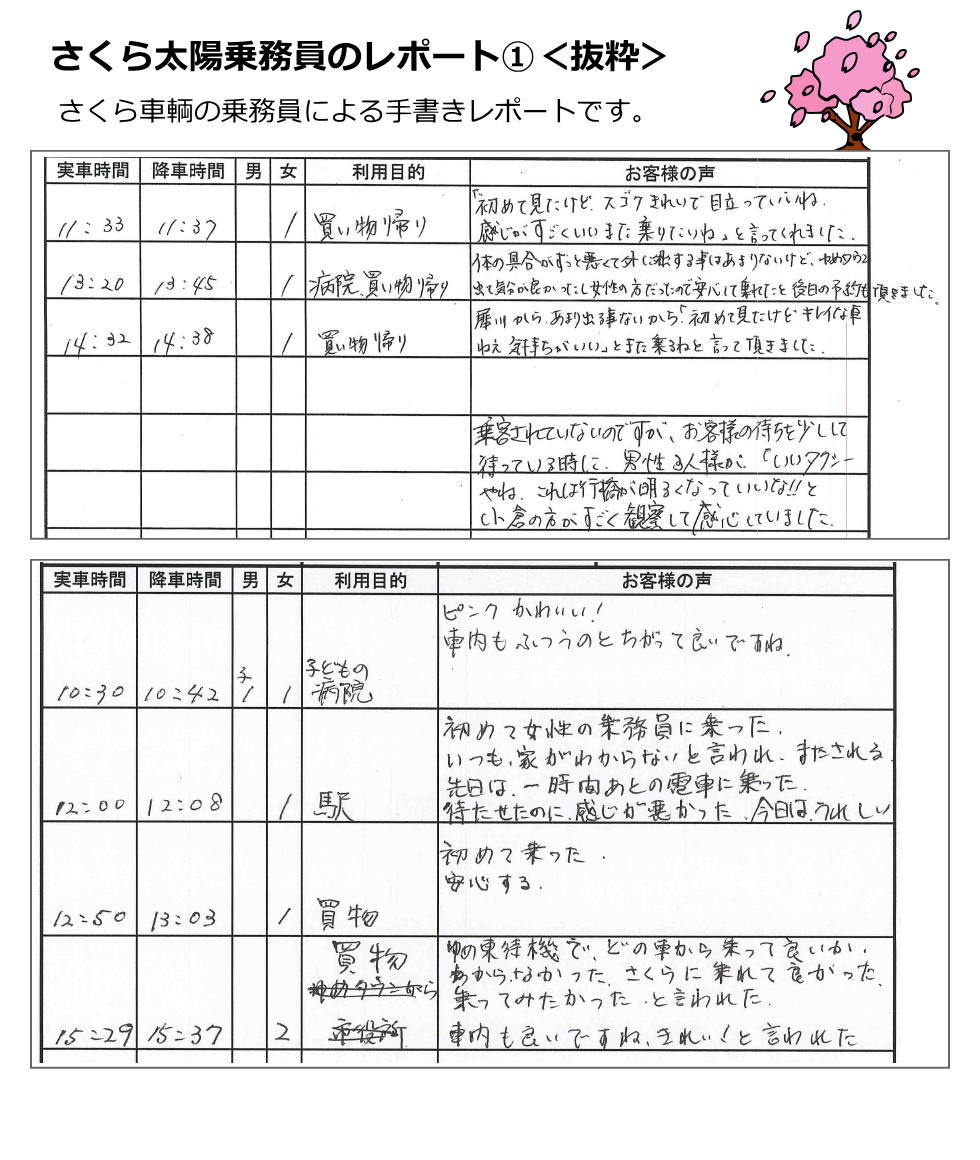 さくら太陽乗務員のレポート①＜抜粋＞
さくら車輌の乗務員による手書きレポートです。
実車時間 降車時間 男 女 利用目的 お客様の声
「初めて見たけど、スゴクきれいで目立っていいね。
11:33 11:37 1 買い物帰り 感じがすごくいいまた乗りたいね」と言ってくれました。
体の具合がずっと悪くて外に出する事はあまりないけど、ゆめタウン
13:20 13:45 1 病院、買い物帰り 出て気分が良かったし女性の方だったので安心して乗れたこと後日の予約も頂きました。
犀川から、あまり出る事ないから「初めて見たけどキレイな車
14:32 14:38 1 買い物帰り ねぇ気持ちがいい」とまた乗るねと言って頂きました。
乗客されていないのですが、お客様の待ちを少しして
待っている時に、男性3人様が、「いいタクシー
やね、これは行橋が明るくなっていいな!!と
小倉の方がすごく観察して感心していました。
実車時間 降車時間 男 女 利用目的 お客様の声
ピンク かわいい!
車内もふつうのとちがって良いですね。
10:30 10:42 子1 1 子どもの病院
初めて女性の乗務員に乗った。
いつも、家がわからないと言われ、またされる
先日は、一時間あとの電車に乗った。
12:00 12:08 1 駅 待たせたのに、感じが悪かった、今日は、うれしい
初めて乗った。
安心する。
12:50 13:03 1 買物
買物 ゆめ東待機で、どの車から乗って良いか、
ゆめタウンから わからなかった、さくらに乗れて良かった
乗ってみたかった と言われた。
15:29 15:37 2 市役所 車内も良いですね、きれい!と言われた